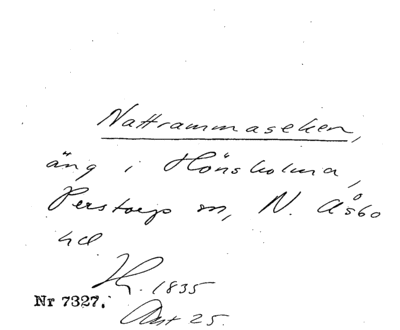 Nattrammaseken,
äng i Hönsholma,
Perstorps sn, N. Åsbo
hd
1835
Nr 7327.
Akt 25.